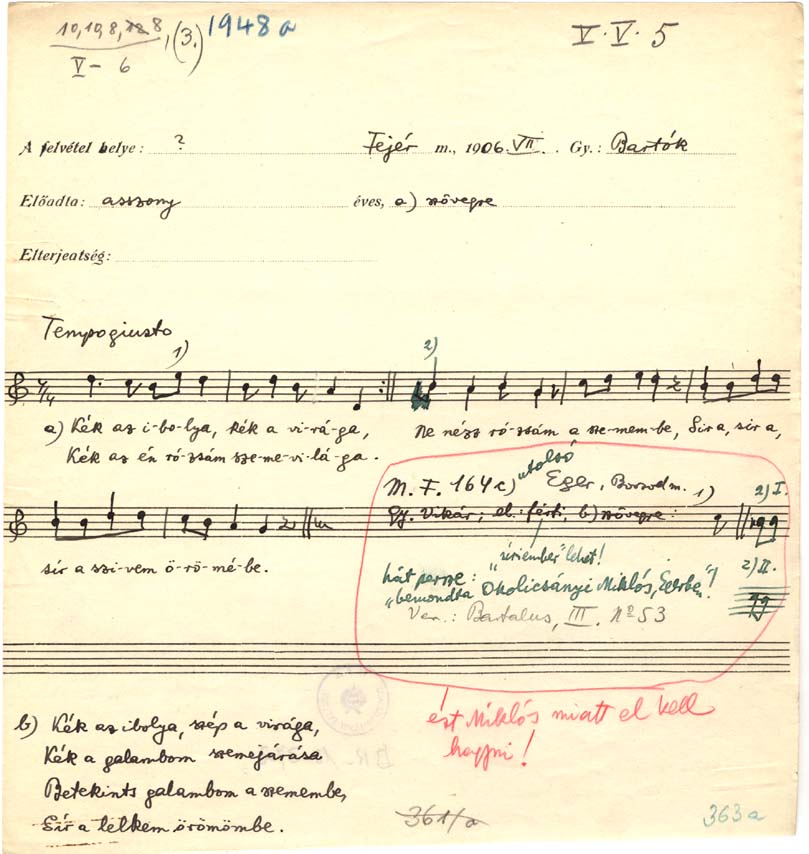 10, 10, 8, 8, (3.) 1948a V. V. 5
V – 6
A felvétel helye: ? Fejér m., 1906. VII. Gy.: Bartók
Előadta: asszony éves, a) szövegre
Elterjedtség:
Tempo giusto
1) 2)
a) Kék az i-bo-lya, kék a vi-rá-ga, Ne nézz ró-zsám a sze-mem-be, Sír a, sír a,
Kék az én ró-zsám sze-me-vi-lá-ga.
M. F. 164c) "utolsó" Eger, Borsod m. 1) 2) I.
Gy. Vikár; el. férfi, b) szövegre:
sír a szí-vem ö-rö-mé-be.
"úriember" lehet! 2) II.
hát persze:
"bemondta Okolicsányi Miklós, Egerbe"!
Var.: Bartalus, III. No 53
ezt Miklós miatt el kell
hagyni!
b) Kék az ibolya, szép a virága,
Kék a galambom szemejárása
Betekints galambom a szemembe,
Sír a lelkem örömömbe.
361/a 363a